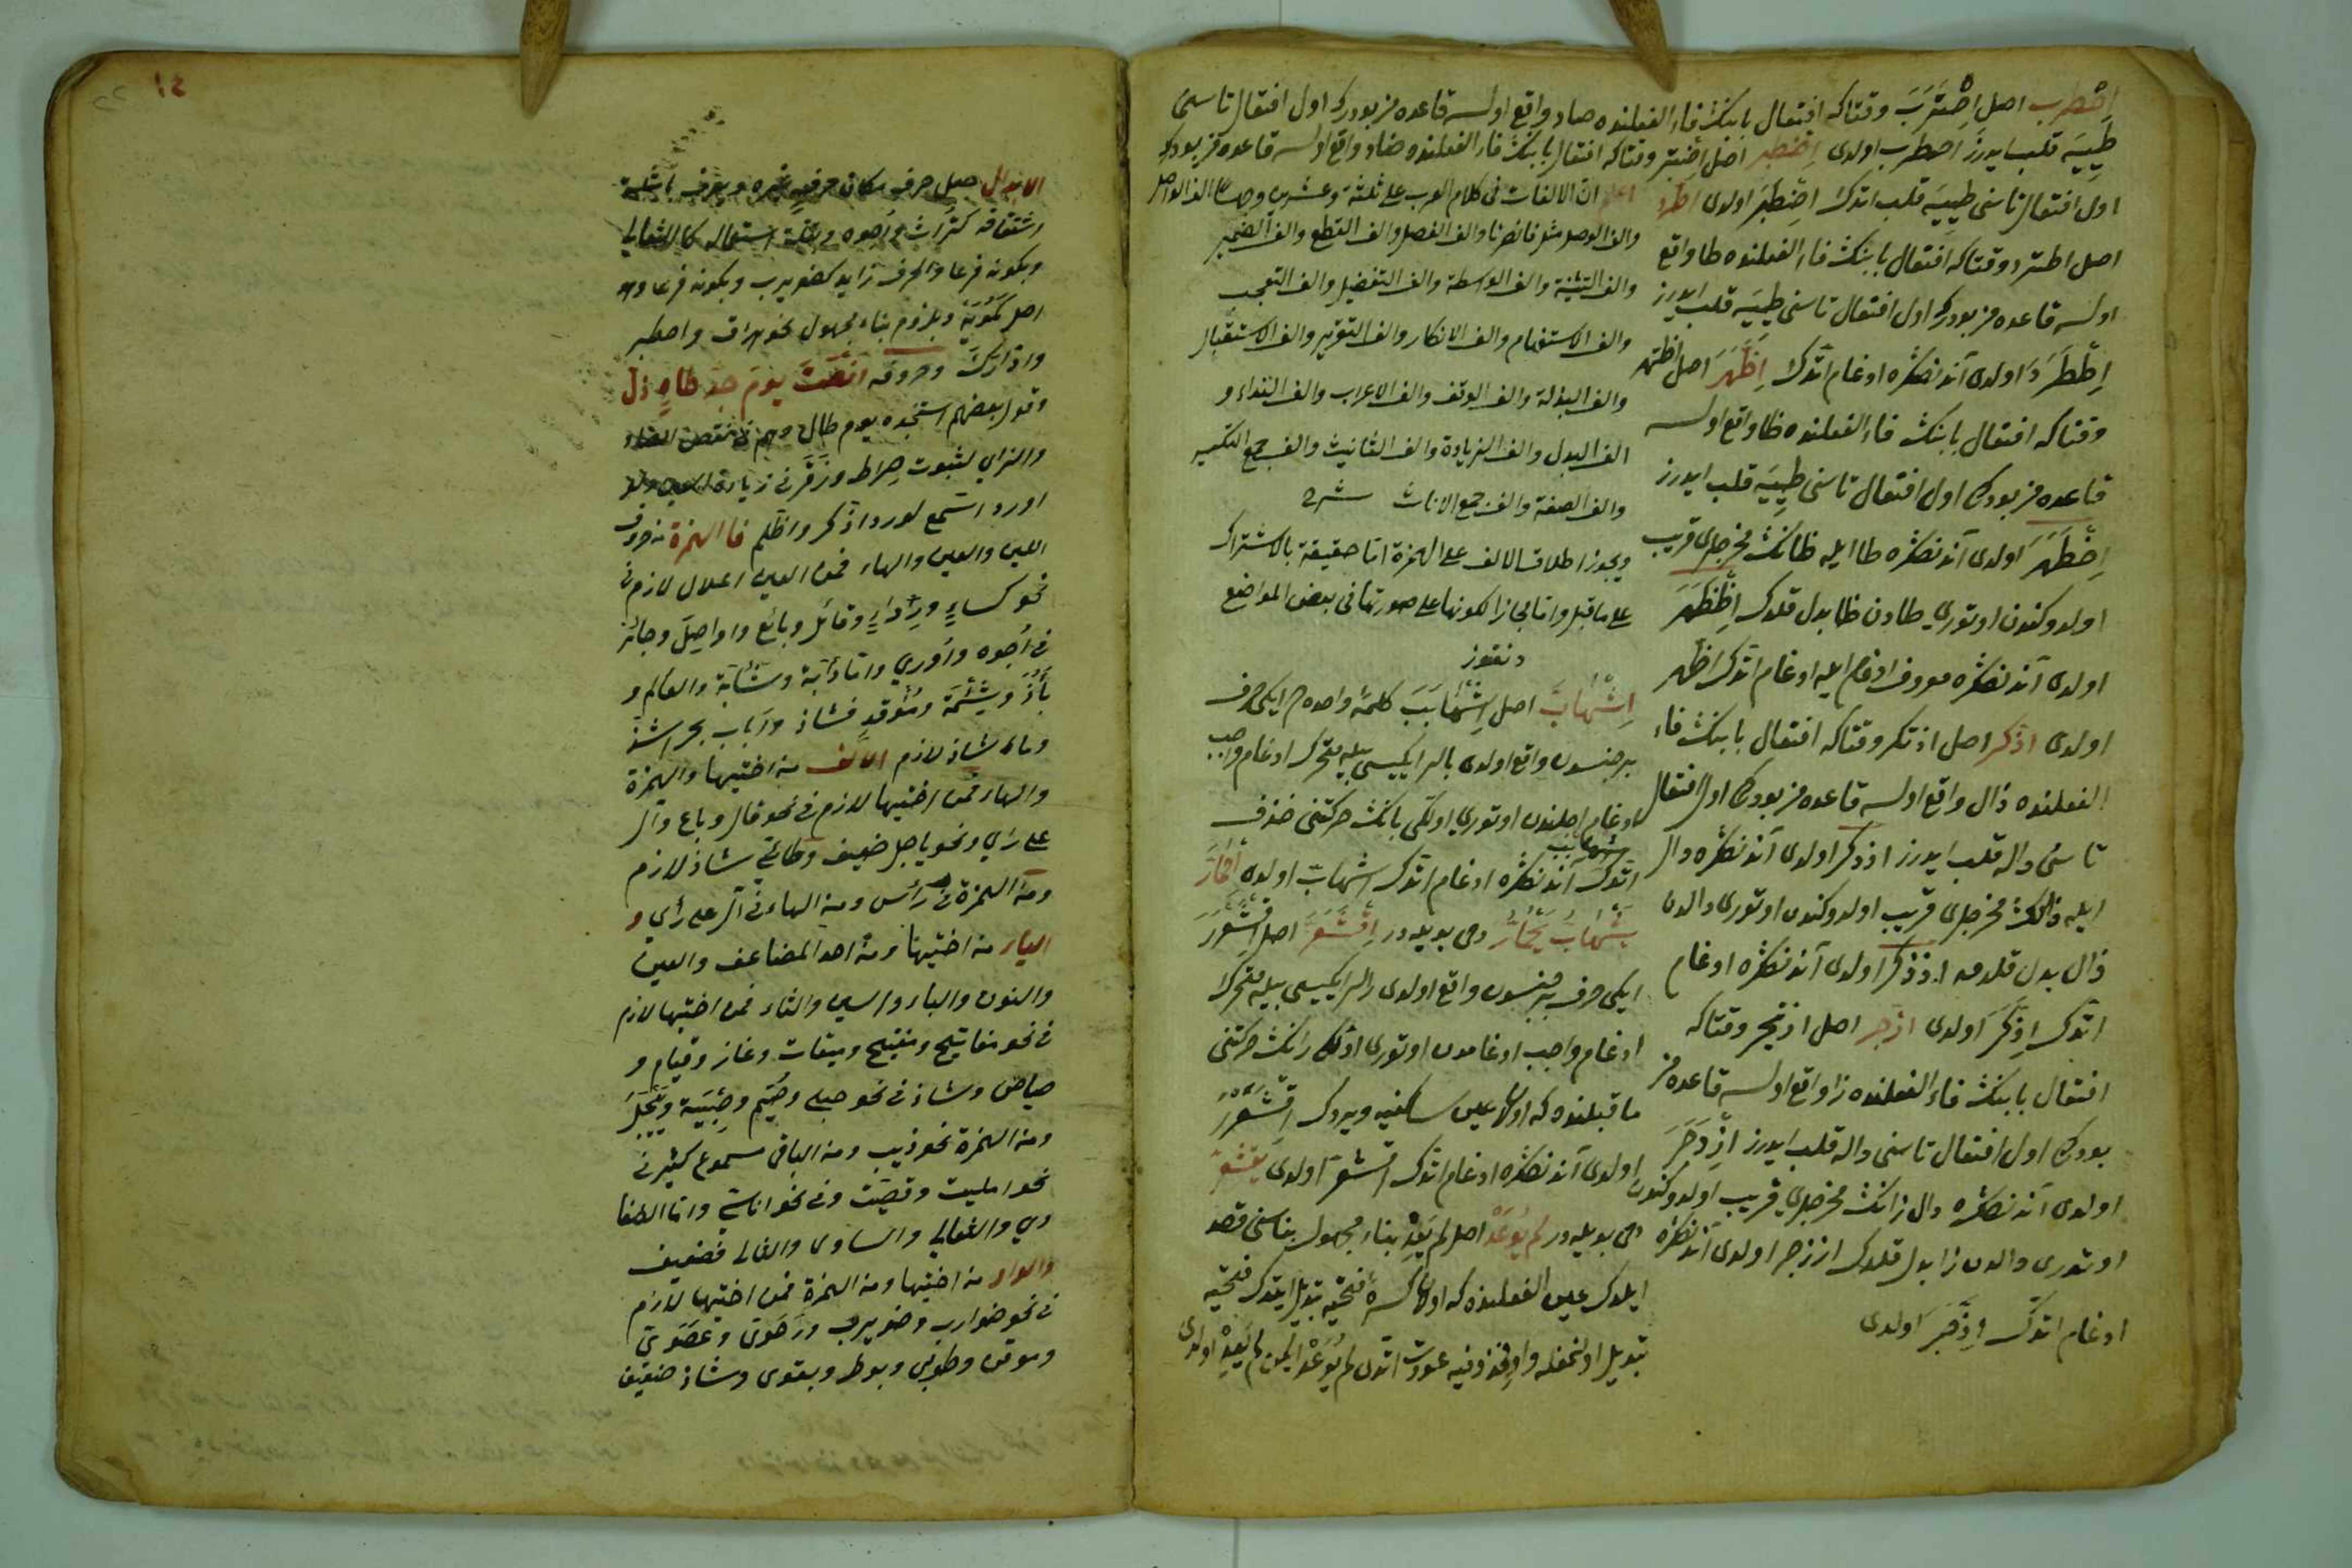 اصطرب اصل اصترب وقتاكه افتعال بابنك فاء الفعلنده صاد واقع اولسه قاعده مز بودركه اول افتعال تاسنى
طييه قلب ايدرز اصطرب اولدى اضطبر اصل اضتبر وقتاكه افتعال بابنك فاء الفعلنده ضاد واقع اولسه قاعده مز بودركه
اول افتعال تاسنى طييه قلب اتدك اضطبر اولدى اطرد
اصل اطترد وقتاكه افتعال بابنك فاء الفعلنده طا واقع
اولسه قاعده مز بودركه اول افتعال تاسنى طييه قلب ايدرز
اططرد اولدى آندنصكره ادغام اتدك اظهر اصل اظتهر
وقتاكه افتعال بابنك فاء الفعلنده ظا واقع اولسه
قاعده مز بودركه اول افتعال تاسنى طييه قلب ايدرز
اظطهر اولدى آندنصكره طا ايله ظانك مخرجلرى قريب
اولدوكندن اوتورى طادن ظا بدل قلدك اظظهر
اولدى آندنصكره ادغام اتدك اظهر
اولدى اذكر اصل اذتكر وقتاكه افتعال بابنك فاء
الفعلنده ذال واقع اولسه قاعده مز بودركه اول افتعال
تاسنى داله قلب ايدرز اذدكر اولدى آندنصكره دال
ايله ذالك مخرجلرى قريب اولدوكندن اوتورى دالدن
ذال بدل قلدق اذذكر اولدى آندنصكره ادغام
اتدك اذكر اولدى ازجر اصل ازتجر وقتاكه
افتعال بابنك فاء الفعلنده زا واقع اولسه قاعده مز
بودركه اول افتعال تاسنى داله قلب ايدرز ازدجر
اولدى آندنصكره دال زانك مخرجلرى قريب اولدوكندن
اوتورى دالدن زا بدل قلدك اززجر اولدى آندنصكره
ادغام اتدك ازجر اولدى
اعلم ان الالفات فى كلام العرب على ثلثة وعشرين وجها الف الوصل
والف الوصل مثل فانصرنا والف الفصل والف القطع والف الضمير
والف التثنية والف الواسطة والف التفضيل والف التعجب
والف الاستفهام والف الانكار والف التقرير والف الاستقبال
والف المبدلة والف الوقف والف الاعراب والف النداء و
الف البدل والف الزيادة والف التانيث والف جمع التكسير
والف الصفة والف جمع الاناث شرح
ويجوز اطلاق الالف على الهمزة اما حقيقة بالاشتراك
على ما قيل واما مجازا لكونها على صورتها فى بعض المواضع
دنقوز
اشهاب اصل اشهابب كلمة واحده ده ايكى حرف
بر جنسدن واقع اولدى بالر ايكيسى بيله متحرك ادغام واجب
ادغام اجلندن اوتورى اولكى بانك حركتنى حذف
اتدك اشهابب آندنصكره ادغام اتدك اشهاب اولدى احمار
يشهاب يحمار دخى بويله در اقشعر اصل اقشعرر
ايكى حرف بر جنسدن واقع اولدى رالر ايكيسى بيله متحرك
ادغام واجب ادغامدن اوتورى اولكى رانك حركتنى
ما قبلنده كه اولان عين ساكنيه ويردك اقشعرر
اولدى آندنصكره ادغام اتدك اقشعر اولدى يقشعر
دخى بويله در لم يوعد اصل لم يعد بناء مجهول بناسنى قصد
ايلدك عين الفعلنده كه اولان كسره فتحيه تبديل ايتدك فتحيه
تبديل اولنمغله واو محذوفيه عودت اتدى لم يوعد ايكن لم يعد اولدى
١٤
الابدال جعل حرف مكان حرف غيره ويعرف بامثلة
اشتقاقه كتراث واجوه وبقلة استعماله كالثعالي
وبكونه فرعا والحرف زايد كضويرب وبكونه فرعا وهو
اصل كمويه وبلزوم بناء مجهول نحو هراق واصطبر
وادارك وحروفه انصت يوم جد طاه زل
وقول بعضهم استنجده يوم طال وهم فى نقص الصاد
والزاي لثبوت صراط وزقر فى زيادة السين ولو
اورد استمع لورد اذكر واظلم فالهمزة من حروف
اللين والعين والهاء فمن اللين اعلال لازم فى
نحو كساء ورداء وقائل وبائع واواصل وجائز
فى اجوه واوري واما دأبة وشأبة والعالم و
بأز وشئمة ومؤقد فشاذ وأباب بحر اشذ
وماء شاذ لازم الالف من اختيها والهمزة
والهاء فمن اختيها لازم فى نحو قال وباع وآل
على رأي ونحو ياجل ضعيف وطائي شاذ لازم
ومن الهمزة فى رأس ومن الهاء فى آل على رأي و
الياء من اختيها ومن احد المضاعف والعين
والنون والباء والسين والثاء فمن اختيها لازم
فى نحو مفاتيح ومفيتيح وميقات وغاز وقيام و
حياض وشاذ فى نحو حبلى وصيم وصبية وييجل
ومن الهمزة نحو ذيب ومن الباقى مسموع كثير فى
نحو امليت وقصيت وفى نحو اناسي واما الضفا
دي والثعالي والسادى والثالى فضعيف
والواو من اختيها ومن الهمزة فمن اختيها لازم
فى نحو ضوارب وضويرب ورحوى وعصوي
وموقن وطوبى وبوطر وبقوى وشاذ ضعيف